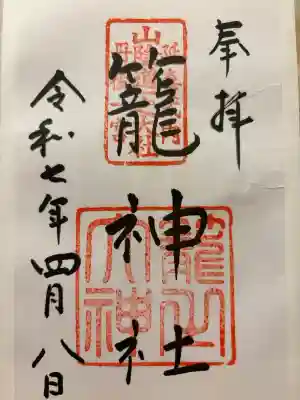 奉拝
籠神社
令和七年四月八日
籠之大神